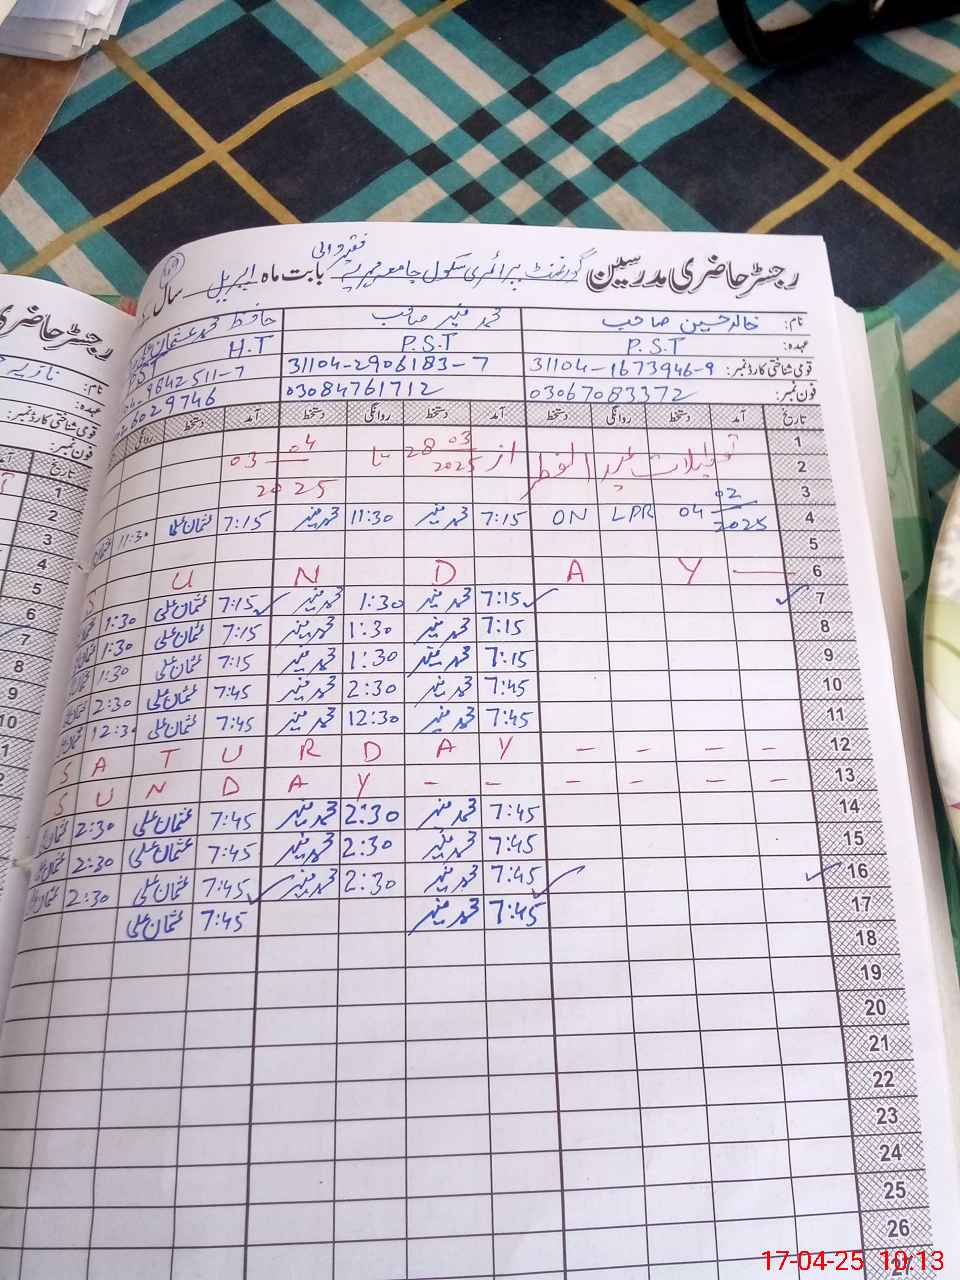 رجسٹر حاضری مدرسین گورنمنٹ پرائمری سکول جامعہ بابت ماہ اپریل سال
نام: خالد حسین صاحب محمد منیر صاحب حافظ محمد عثمان علی
عہدہ: P.S.T P.S.T H.T
قومی شناختی کارڈ نمبر: 31104-1673946-9 31104-2906183-7 9842511-7
فون نمبر: 03067083372 03084761712 6029746
تاریخ آمد دستخط روانگی دستخط آمد دستخط روانگی دستخط آمد دستخط روانگی
1 تعطیلات عید الفطر از 28 03 2025 تا 03 04 2025
2
3
4 02 2025 04 LPR ON 7:15 محمد منیر 11:30 محمد منیر 7:15 عثمان علی 11:30
5
6 S U N D A Y —
7 7:15 محمد منیر 1:30 محمد منیر 7:15 عثمان علی 1:30
8 7:15 محمد منیر 1:30 محمد منیر 7:15 عثمان علی 1:30
9 7:15 محمد منیر 1:30 محمد منیر 7:15 عثمان علی 1:30
10 7:45 محمد منیر 2:30 محمد منیر 7:45 عثمان علی 2:30
11 7:45 محمد منیر 12:30 محمد منیر 7:45 عثمان علی 12:3
12 S A T U R D A Y - - - -
13 S U N D A Y - - - - - -
14 7:45 محمد منیر 2:30 محمد منیر 7:45 عثمان علی 2:30 عثمان علی
15 7:45 محمد منیر 2:30 محمد منیر 7:45 عثمان علی 2:30 عثمان علی
16 7:45 محمد منیر 2:30 محمد منیر 7:45 عثمان علی 2:30 عثمان علی
17 7:45 محمد منیر 7:45 عثمان علی
18
19
20
21
22
23
24
25
26
27
رجسٹر حاضری
نام:
عہدہ:
قومی شناختی کارڈ نمبر:
فون نمبر:
تاریخ
1
2
3
4
5
6
7
8
9
10
17-04-25 10:13